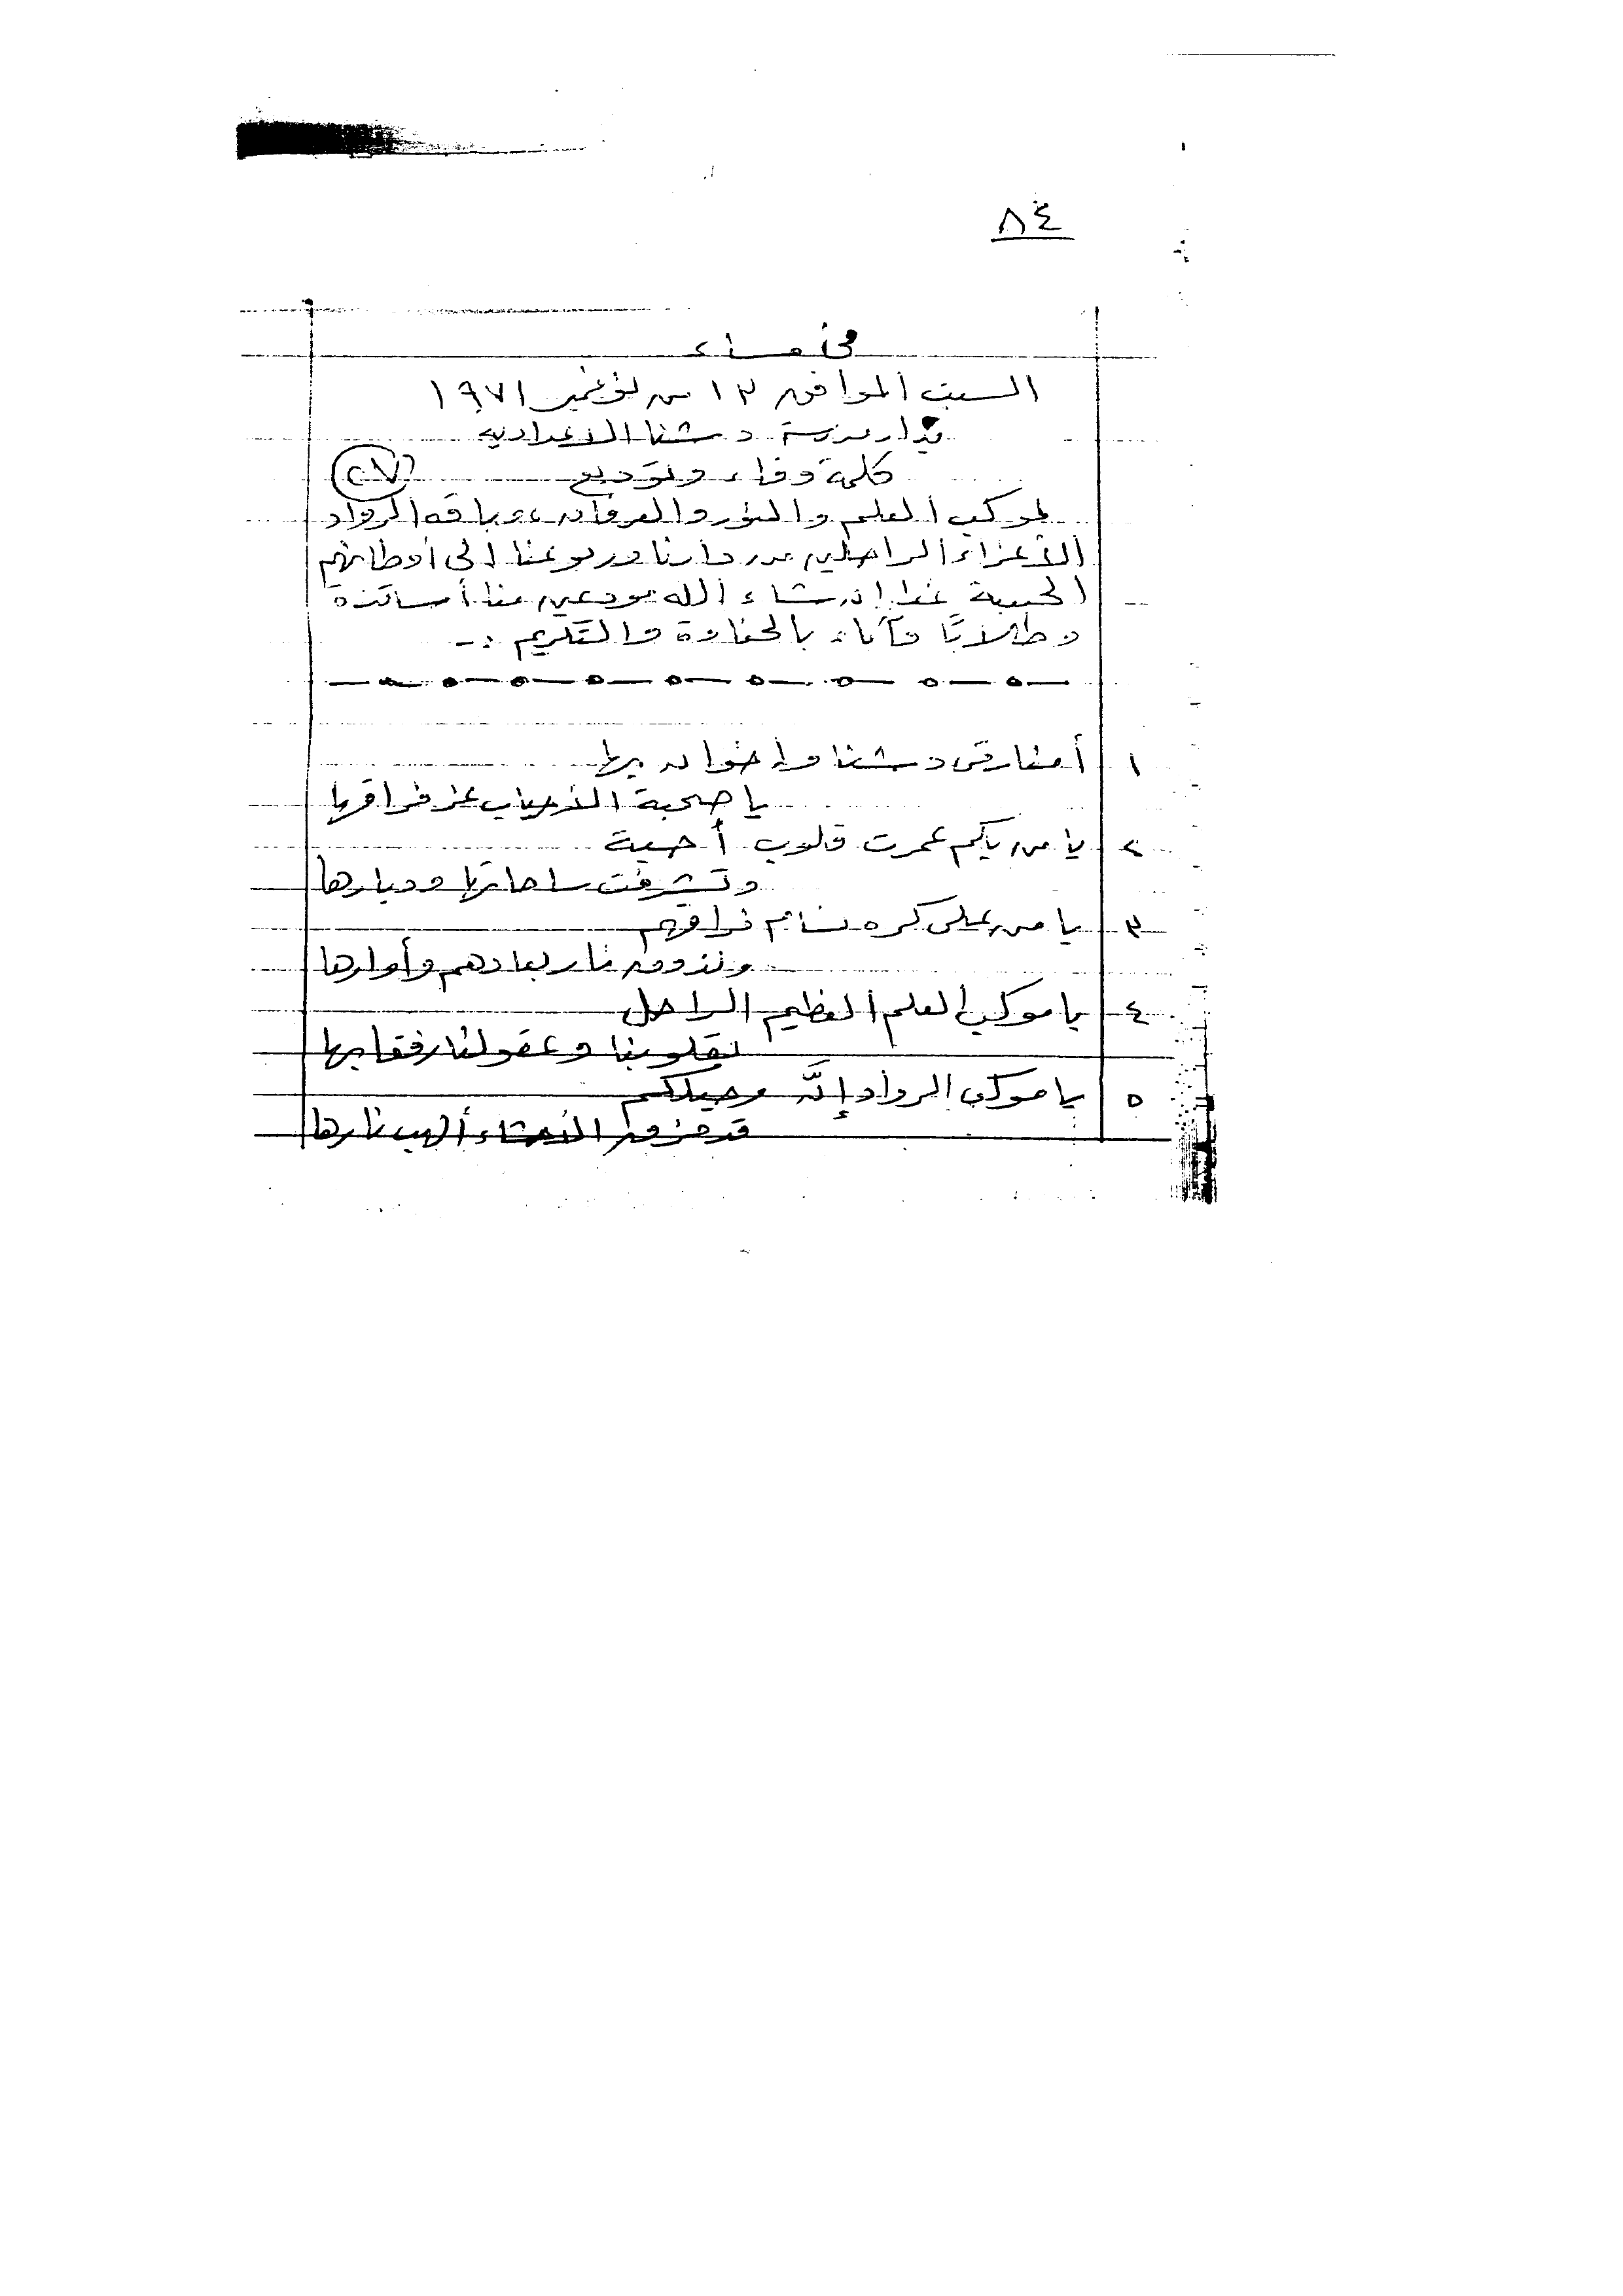 ٨٤
في مساء
السبت الموافق ١٣ من نوفمبر ١٩٧١
بدار مدرسة دشنا الاعدادية
كلمة وفاء وتوديع
(٢٧)
لموكب العلم والنور والعرفان، وباقة الرواد
الأعزاء الراحلين من دارنا وربوعنا إلى أوطانهم
الحبيبة غدا إن شاء الله مودعين منا أساتذة
وطلابًا وآباء بالحفاوة والتكريم :-
١ أمفارقى دشنا وإخوان بها
يا صحبة الأحباب عز فراقها
٢ يا من بكم عمرت قلوب أحبة
وتشرفت ساحاتها وديارها
٣ يا من على كره نسام فراقهم
ونذوق نار بعادهم وأوارها
٤ يا موكب العلم العظيم الراحل
بقلوبنا وعقولنا رفقا بها
٥ يا موكب الرواد إنَّ رحيلكم
قد مزق الأحشاء ألهب نارها